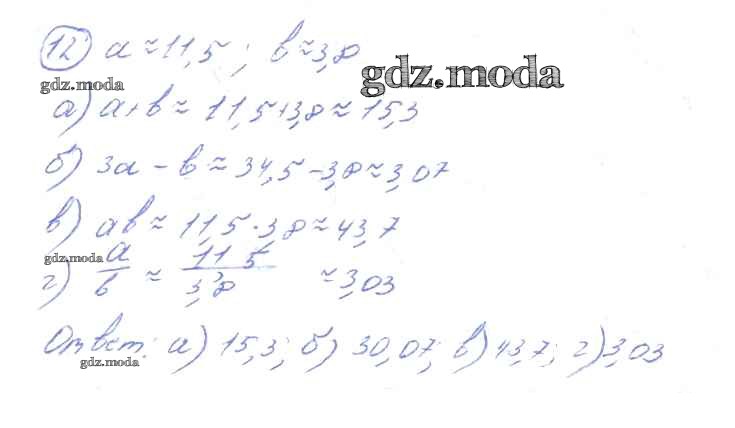 12) a ≈ 11,5 ; b ≈ 3,8
gdz.moda
gdz.moda
а) a+b ≈ 11,5+3,8 ≈ 15,3
б) 3a - b ≈ 34,5 - 3,8 ≈ 3,07
в) ab ≈ 11,5 · 3,8 ≈ 43,7
gdz.moda
г) a/b ≈ 11,5/3,8 ≈ 3,03
Ответ: а) 15,3; б) 30,07; в) 43,7; г) 3,03
gdz.moda